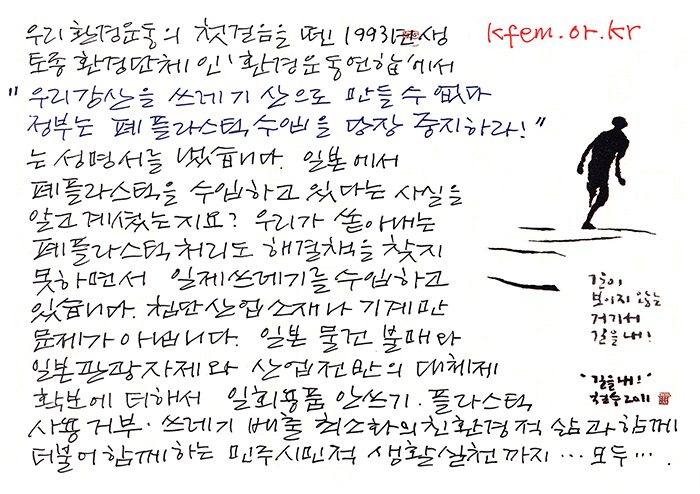 우리 환경운동의 첫걸음을 뗀 1993년생
kfem.or.kr
토종 환경단체인 '환경운동연합'에서
"우리강산을 쓰레기 산으로 만들 수 없다
정부는 폐플라스틱 수입을 당장 중지하라!"
는 성명서를 냈습니다. 일본에서
폐플라스틱을 수입하고 있다는 사실을
알고 계셨는지요? 우리가 쏟아내는
폐플라스틱 처리도 해결책을 찾지
못하면서 일제쓰레기를 수입하고
있습니다. 첨단산업 소재나 기계만
문제가 아닙니다. 일본 물건 불매와
일본관광 자제와 산업전반의 대체제
확보에 더해서 일회용품 안쓰기·플라스틱
사용거부·쓰레기 배출 최소화의 친환경적 삶과 함께
더불어 함께하는 민주시민적 생활실천까지…모두….
길이
보이지 않는
거기서
길을 내!
"길을 내!"
2011